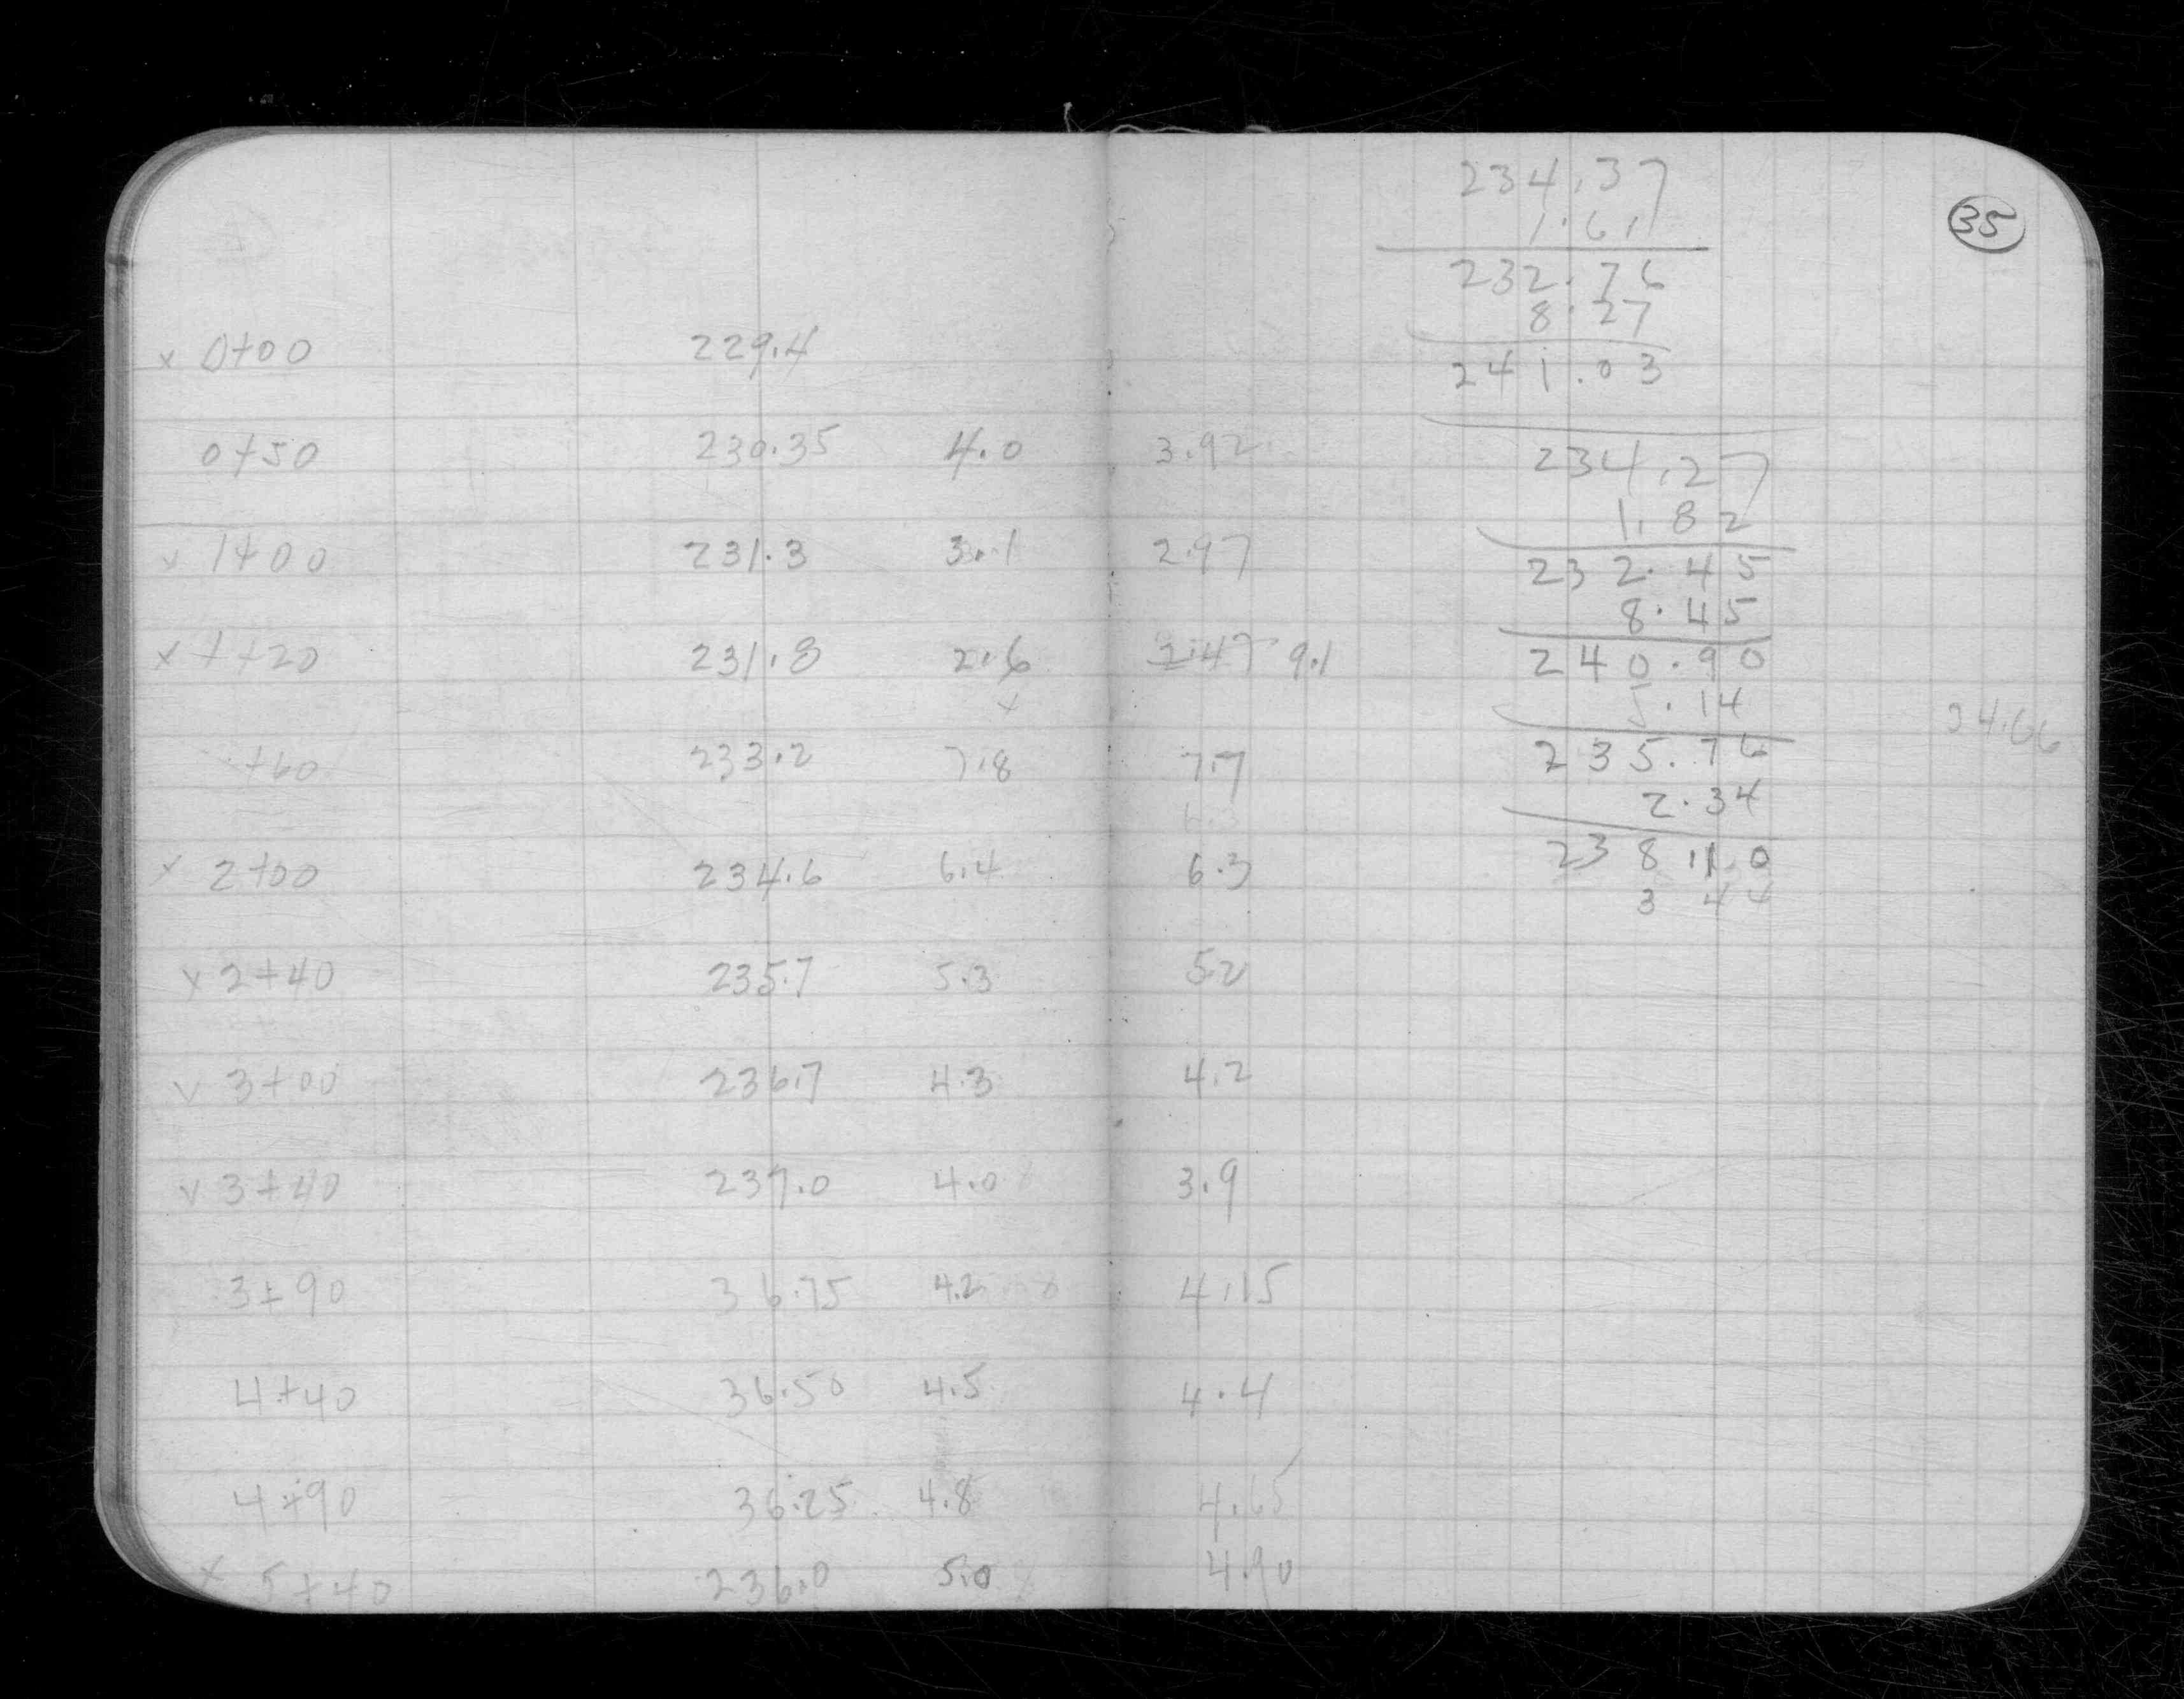 x 0+00 229.4
0+50 230.35 4.0 3.92
x 1+00 231.3 3.1 2.97
x 1+20 231.8 2.6 2.47 9.1
x
+60 233.2 7.8 7.7
6.3
x 2+00 234.6 6.4 6.3
x 2+40 235.7 5.3 5.2
v 3+00 236.7 4.3 4.2
v 3+40 237.0 4.0 3.9
3+90 36.75 4.2 4.15
4+40 36.50 4.5 4.4
4+90 36.25 4.8 4.65
x 5+40 236.0 5.0 4.90
35
234.37
1.61
232.76
8.27
241.03
234.27
1.82
232.45
8.45
240.90
5.14
235.76
2.34
238.10
3 44
34.66